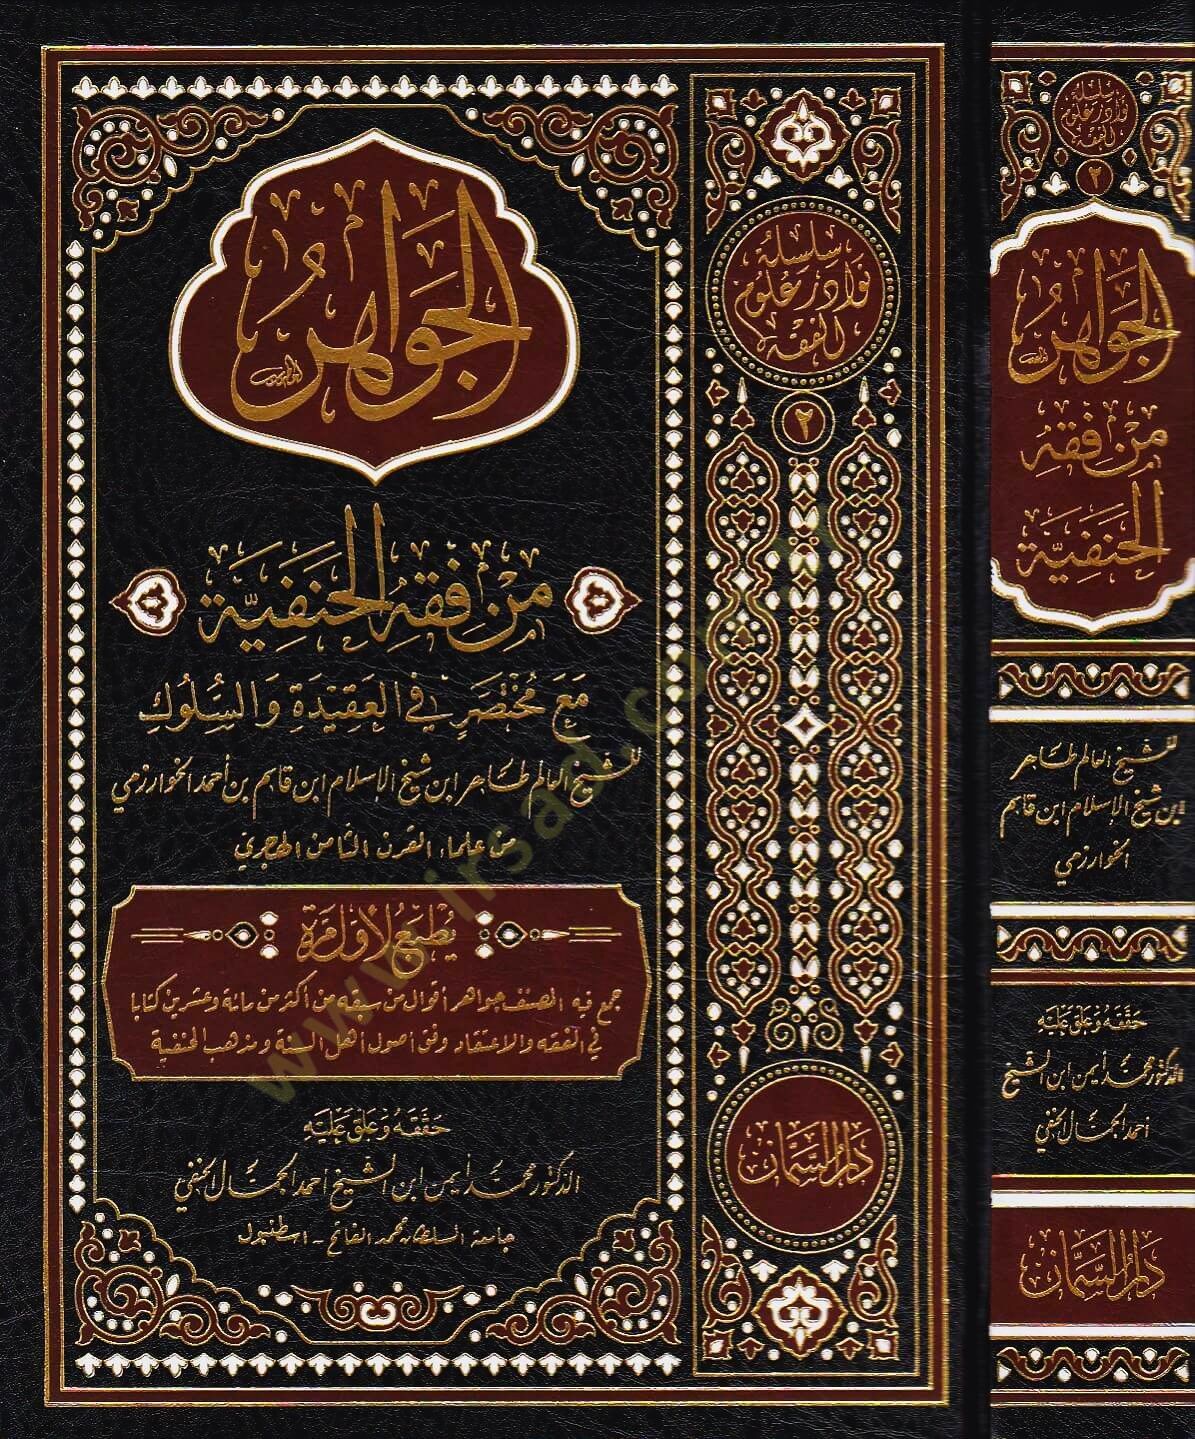 الجَوَاهِر
مِنْ فِقْهِ الحَنَفِيَّة
مَعَ مُخْتَصَرٍ فِي العَقِيْدَةِ وَالسُّلُوك
للشيخ العالم طاهر ابن شيخ الإسلام ابن قاسم بن أحمد الخوارزمي
من علماء القرن الثامن الهجري
يُطبعُ لأوّل مَرة
جمع فيه المصنف جواهر أقوال من سبقه من أكثر من مائة وعشرين كتابا
في الفقه والاعتقاد وفق أصول أهل السنة ومذهب الحنفية
حَقَّقَهُ وَعَلَّقَ عَلَيْهِ
الدكتور محمد أيمن ابن الشيخ أحمد الجمَّال الحنفي
جامعة السلطان محمد الفاتح - اسطنبول
سلسلة
نوادر علوم
الفقه
٢
دار السمان
سلسلة
نوادر علوم
الفقه
٢
الجَوَاهِر
مِنْ فِقْهِ
الحَنَفِيَّة
للشيخ العالم طاهر
ابن شيخ الإسلام ابن قاسم
الخوارزمي
حَقَّقَهُ وَعَلَّقَ عَلَيْهِ
الدكتور محمد أيمن ابن الشيخ
أحمد الجمَّال الحنفي
دار السمان
www.irsad.com